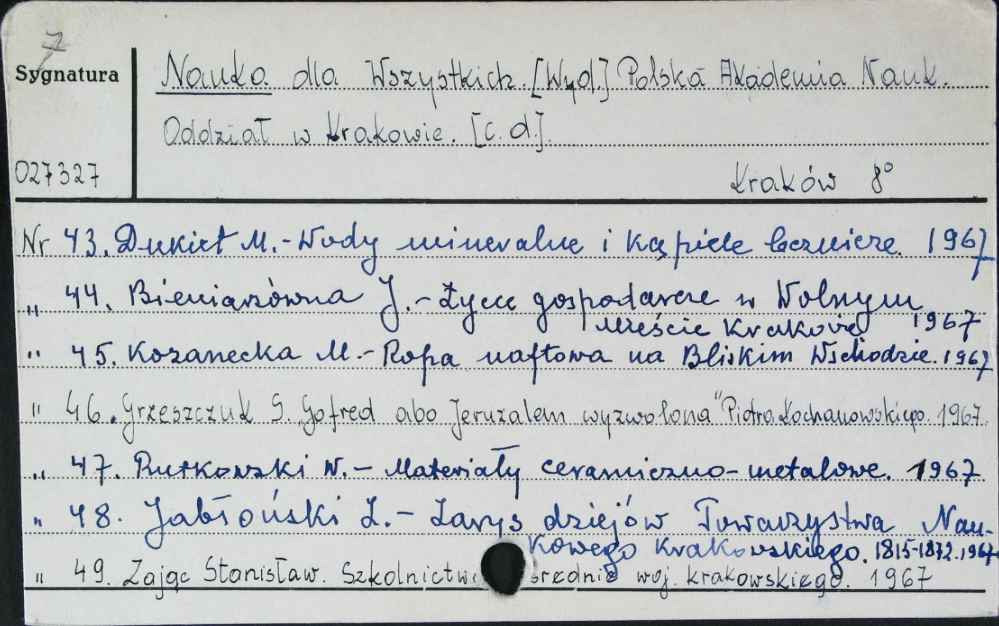 7
Sygnatura
Nauka dla Wszystkich. [Wyd.] Polska Akademia Nauk.
Oddział w Krakowie. [c.d.].
027327
Kraków 8°
Nr 43. Dukiet M. - Wody mineralne i kąpiele lecznicze. 1967
„ 44. Bieniarzówna J. - Życie gospodarcze w Wolnym
Mieście Krakowie 1967
„ 45. Kozanecka M. - Ropa naftowa na Bliskim Wschodzie. 1967
„ 46. Grzeszczuk S. „Gofred abo Jeruzalem wyzwolona" Piotra Kochanowskiego. 1967.
„ 47. Rutkowski W. - Materiały ceramiczno-metalowe. 1967
„ 48. Jabłoński Z. - Zarys dziejów Towarzystwa Nau-
kowego Krakowskiego. 1815-1872. 1967
„ 49. Zając Stanisław. Szkolnictwo średnie woj. krakowskiego. 1967